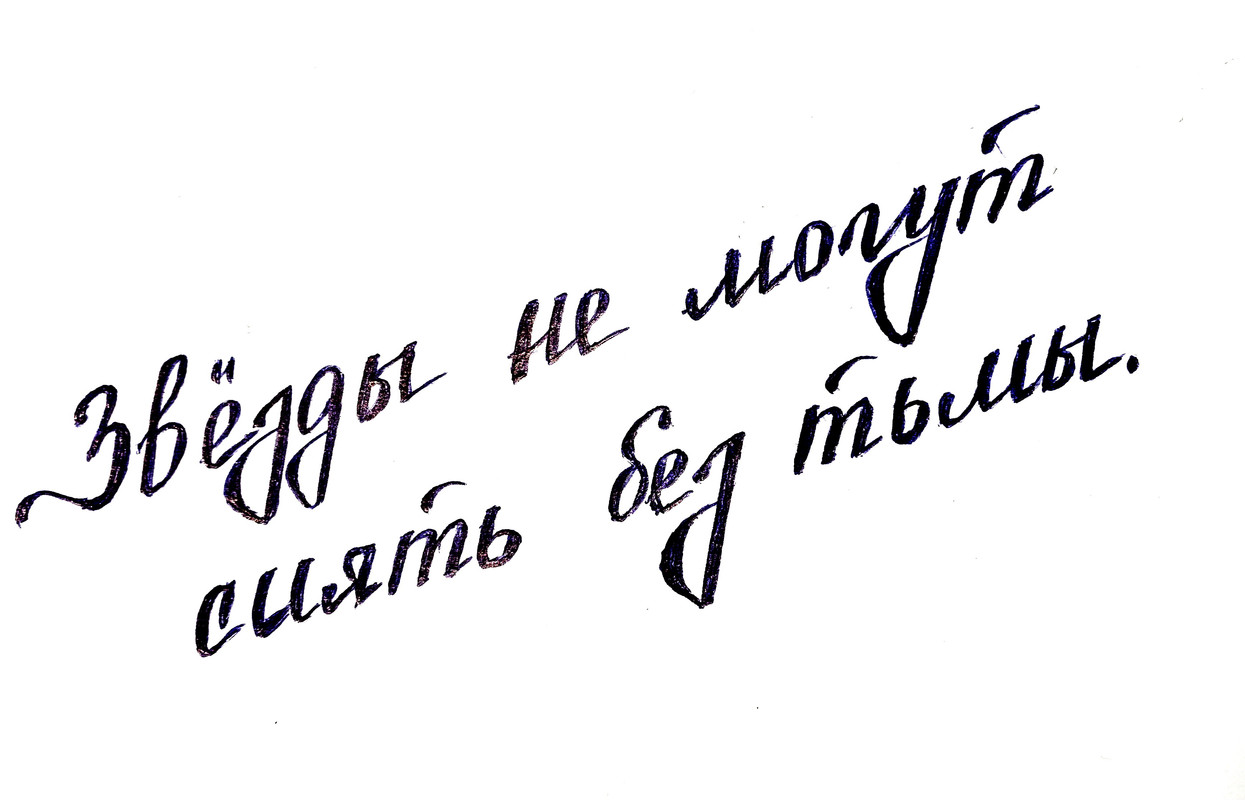 Звёзды не могут
сиять без тьмы.